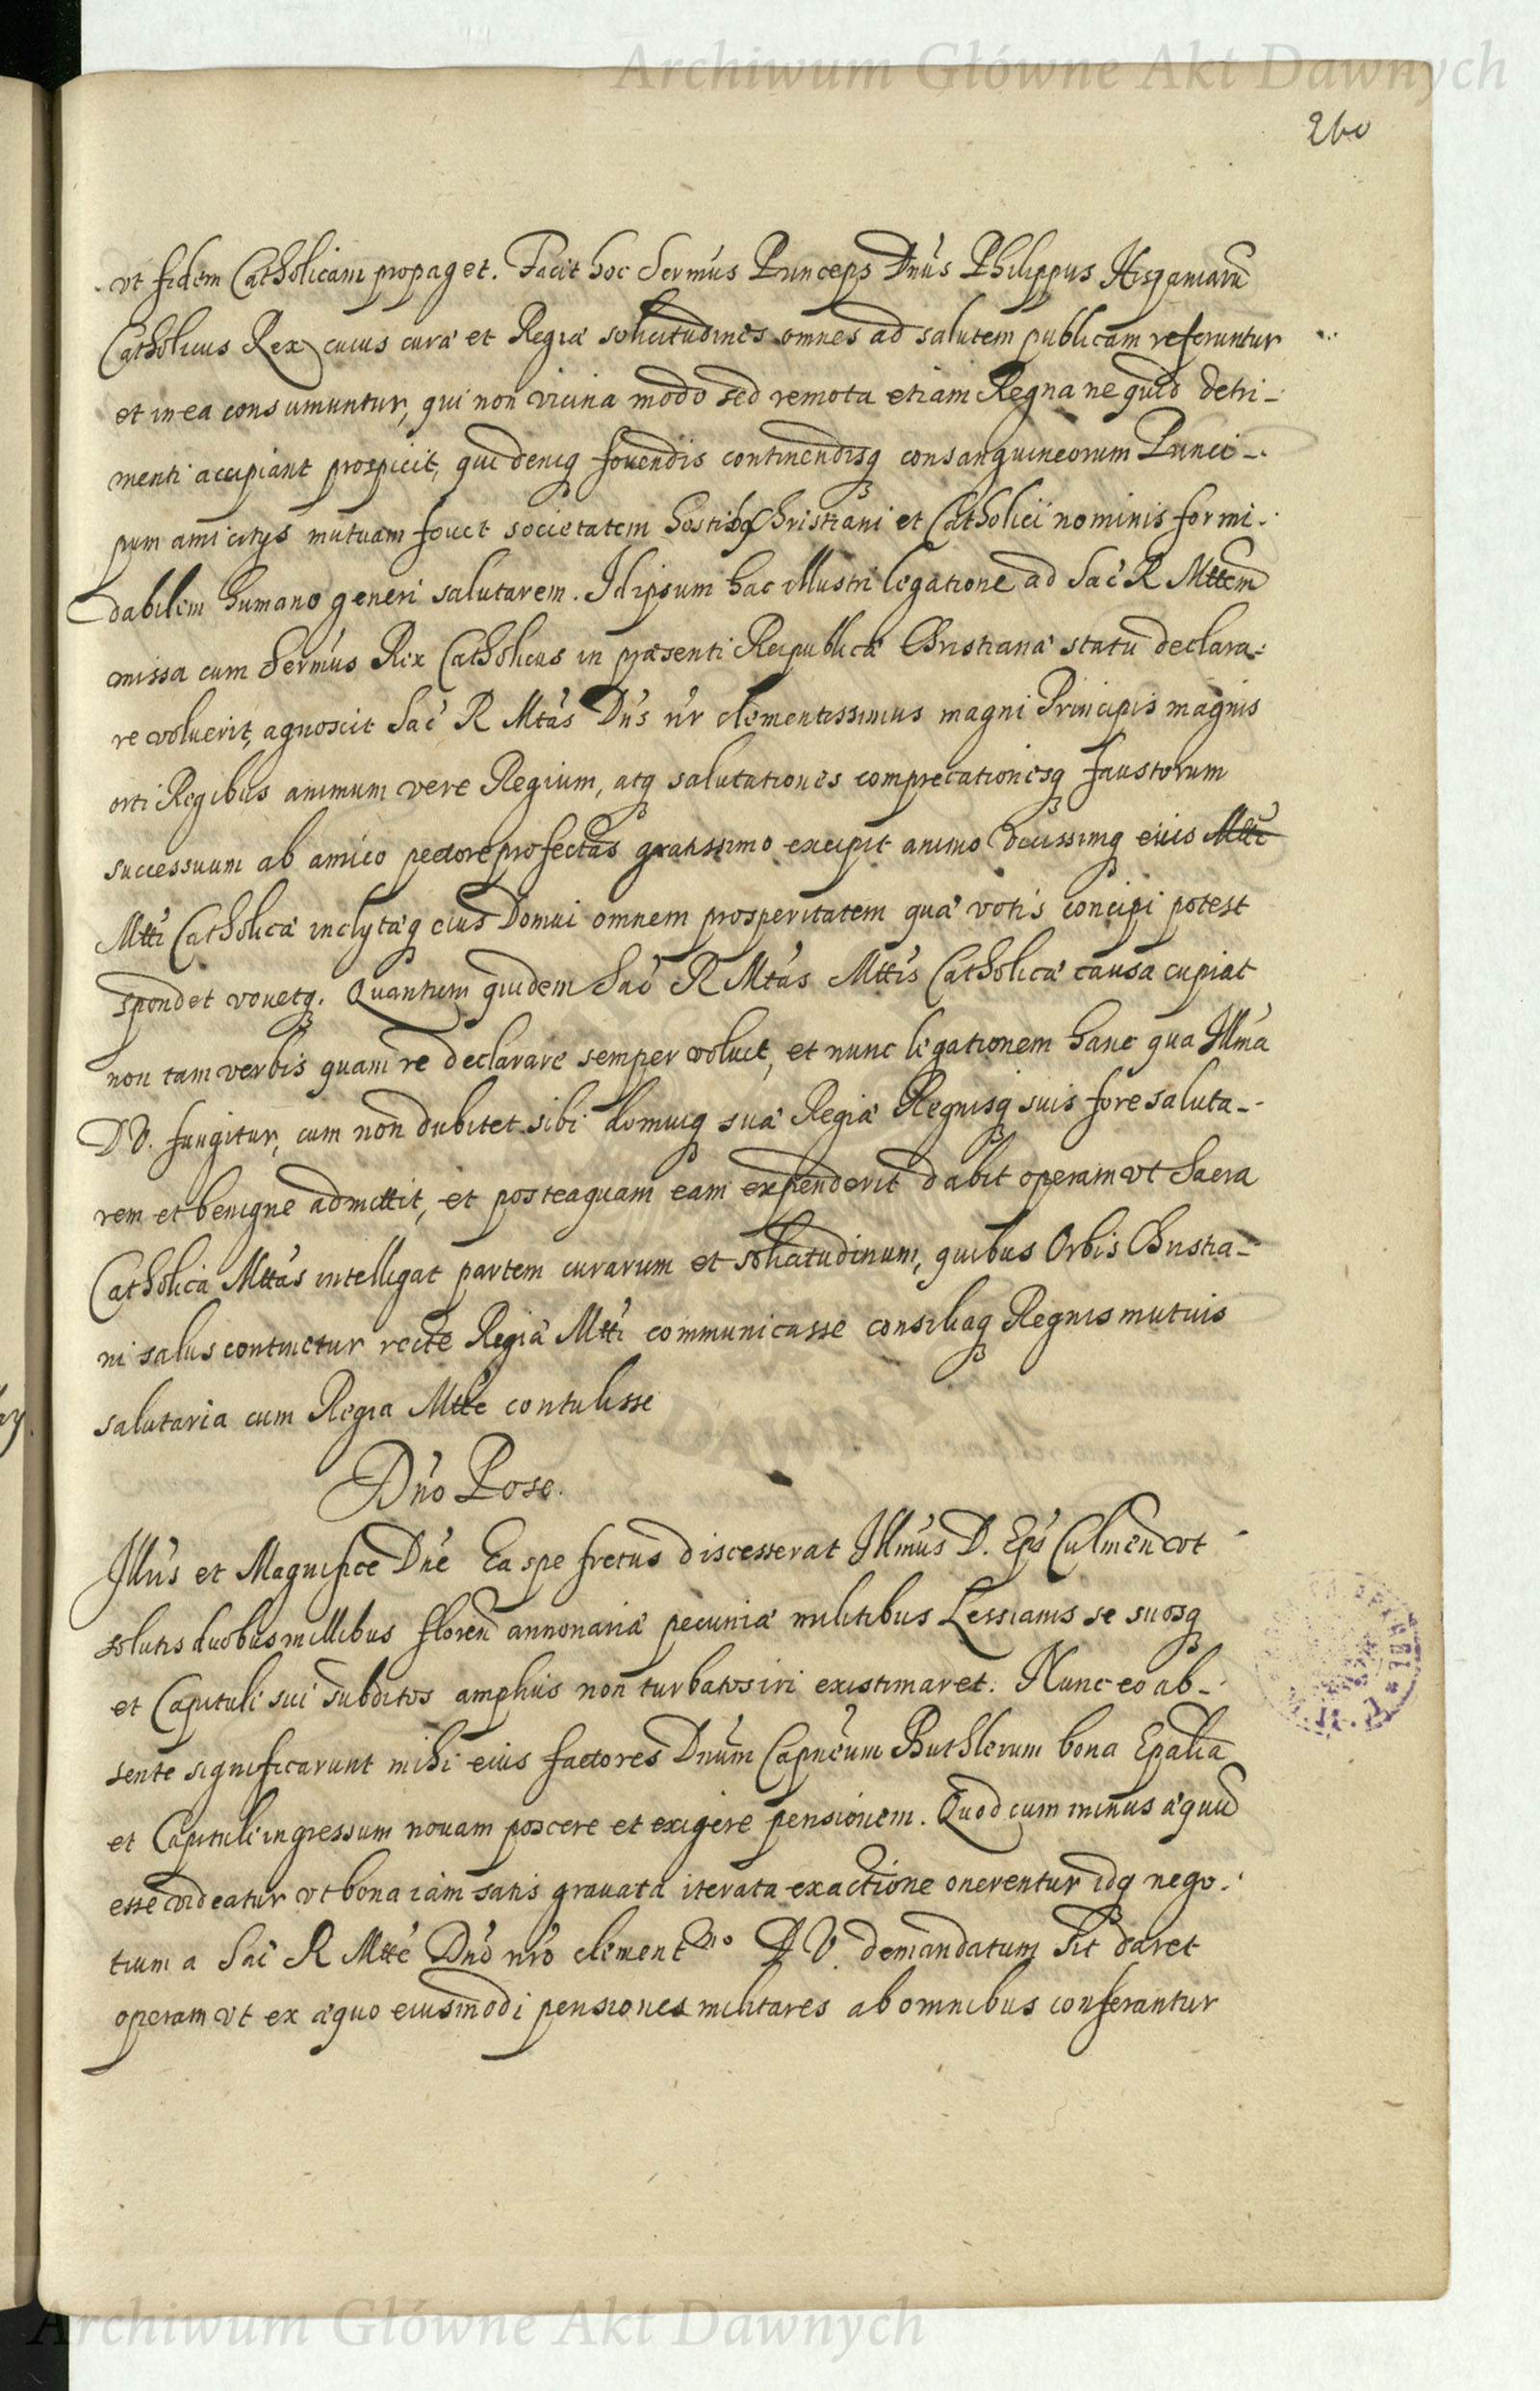 Archiwum Główne Akt Dawnych
260
ut fidem Catholicam propaget. Facit hoc Sermus Princeps Dnus Philippus Hispaniarũ
Catholicus Rex cuius curæ et Regiæ solicitudines omnes ad salutem publicam referuntur
et in ea consumuntur, qui non vicina modo sed remota etiam Regna ne quid detri-
menti accipiant prospicit, qui deniq fovendis continendisq consanguineorum Princi-
pum amicitys mutuam fovet societatem hostibq Christiani et Catholici nominis formi-
dabilem humano generi salutarem. Id ipsum hac illustri legatione ad Sac R Mttem
missa cum Sermus Rex Catholicus in præsenti Reipublicæ Christianæ statu declara-
re voluerit, agnoscit Sac R Mtas Dns nr clementissimus magni Principis magnis
orti Regibus animum vere Regium, atq salutationes comprecationesq faustorum
successuum ab amico pectore profectas gratissimo excipit animo vicissimq eius Mtte
Mtti Catholicæ inclytæq eius Domui omnem prosperitatem quæ votis concipi potest
spondet vovetq. Quantum quidem Sac R Mtas Mttis Catholicæ causa cupiat
non tam verbis quam re declarare semper voluit, et nunc legationem hanc qua Illma
D V. fungitur, cum non dubitet sibi domuiq suæ Regiæ Regnisq suis fore saluta-
rem et benigne admittit, et posteaquam eam expenderit dabit operam ut Sacra
Catholica Mttas intelligat partem curarum et solicitudinum, quibus Orbis Christia-
ni salus continetur recte Regiæ Mtti communicasse consiliaq Regnis mutuis
salutaria cum Regia Mtte contulisse
Dno Pose.
Illus et Magnifice Dne Ea spe fretus discesserat Illmus D. Eps Culmen ut
solutis duobus millibus floren annonariæ pecuniæ militibus Lessianis se suosq
et Capituli sui subditos amplius non turbatos iri existimaret. Nunc eo ab-
sente significarunt mihi eius factores Dnum Capneum Buthlerum bona Epalia
et Capituli ingressum novam poscere et exigere pensionem. Quod cum minus æquũ
esse videatur ut bona iam satis gravata iterata exactione onerentur idq nego-
tium a Sac R Mtte Dno nro clement mo D V. demandatum sit daret
operam ut ex æquo eiusmodi pensiones militares ab omnibus conferantur
Archiwum Główne Akt Dawnych